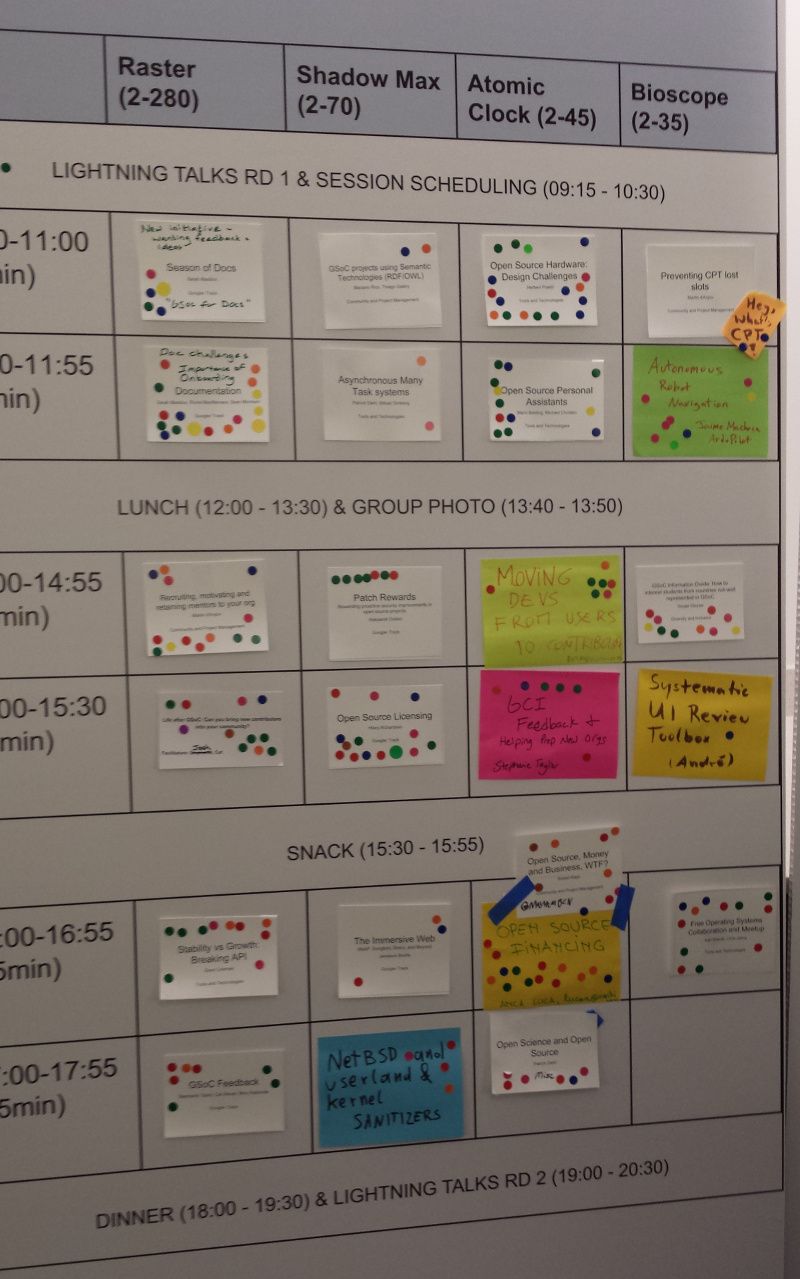 Raster
(2-280)
Shadow Max
(2-70)
Atomic
Clock (2-45)
Bioscope
(2-35)
LIGHTNING TALKS RD 1 & SESSION SCHEDULING (09:15 - 10:30)
0-11:00
in)
New initiative -
wanting feedback +
ideas
Season of Docs
Google Track
"GSoC for Docs"
GSoC projects using Semantic
Technologies (RDF/OWL)
Community and Project Management
Open Source Hardware:
Design Challenges
Tools and Technologies
Preventing CPT lost
slots
Community and Project Management
Hey,
what's
CPT
0-11:55
nin)
Doc challenges
Importance of
Onboarding
Documentation
Google Track
Asynchronous Many
Task systems
Tools and Technologies
Open Source Personal
Assistants
Tools and Technologies
Autonomous
Robot
Navigation
Jaime Machuca
ArduPilot
LUNCH (12:00 - 13:30) & GROUP PHOTO (13:40 - 13:50)
00-14:55
min)
Recruiting, motivating and
retaining mentors to your org
Community and Project Management
Patch Rewards
Rewarding proactive security improvements in
open source projects
Google Track
MOVING
DEVS
FROM USERS
TO CONTRIBUTORS
GSoC Information Guide: How to
interest students from countries not well
represented in GSoC
Diversity and Inclusion
00-15:30
min)
Life after GSoC: Can you bring new contributors
into your community?
Facilitators: Josh
Open Source Licensing
Google Track
GCI
Feedback +
Helping Prep New Orgs
Stephanie Taylor
Systematic
UI Review
Toolbox
(André)
SNACK (15:30 - 15:55)
Open Source, Money
and Business, WTF?
Community and Project Management
:00-16:55
5min)
Stability vs Growth:
Breaking API
Tools and Technologies
The Immersive Web
Google Track
OPEN SOURCE
FINANCING
Free Operating Systems
Collaboration and Meetup
Tools and Technologies
:00-17:55
5min)
GSoC Feedback
Google Track
NetBSD and
userland &
kernel
SANITIZERS
Open Science and Open
Source
Misc
DINNER (18:00 - 19:30) & LIGHTNING TALKS RD 2 (19:00 - 20:30)